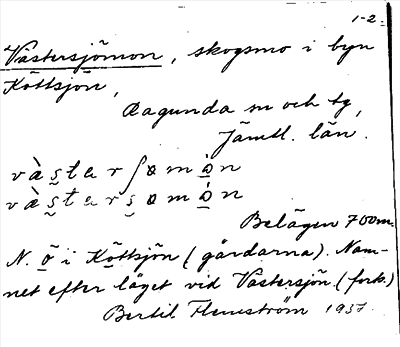 1-2.
Västersjömon, skogsmo i byn
Köttsjön,
Ragunda sn och tg,
Jämtl. län.
Belägen 700 m.
N. ö i Köttsjön (gårdarna). Nam-
net efter läget vid Västersjön. (fork.)
Bertil Flemström 1937.